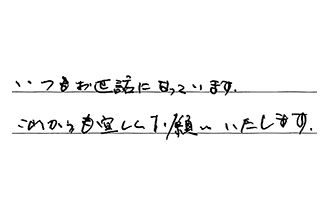 いつもお世話になっています.
これからも宜しくお願いいたします.